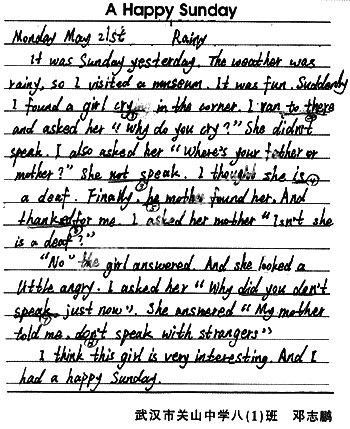 A Happy Sunday
Monday May 21st Rainy
It was Sunday yesterday. The weather was
rainy, so I visited a museum. It was fun. Suddenly
I found a girl crying in the corner. I ran to there
and asked her "Why do you cry?" She didn't
speak. I also asked her "Where's your father or
mother?" She not speak. I thought she is
a deaf. Finally, he mother found her. And
thanked for me. I asked her mother "Isn't she
is a deaf?"
"No" the girl answered. And she looked a
little angry. I asked her "Why did you don't
speak just now". She answered "My mother
told me, don't speak with strangers"
I think this girl is very interesting. And I
had a happy Sunday.
武汉市关山中学八(1)班 邓志鹏